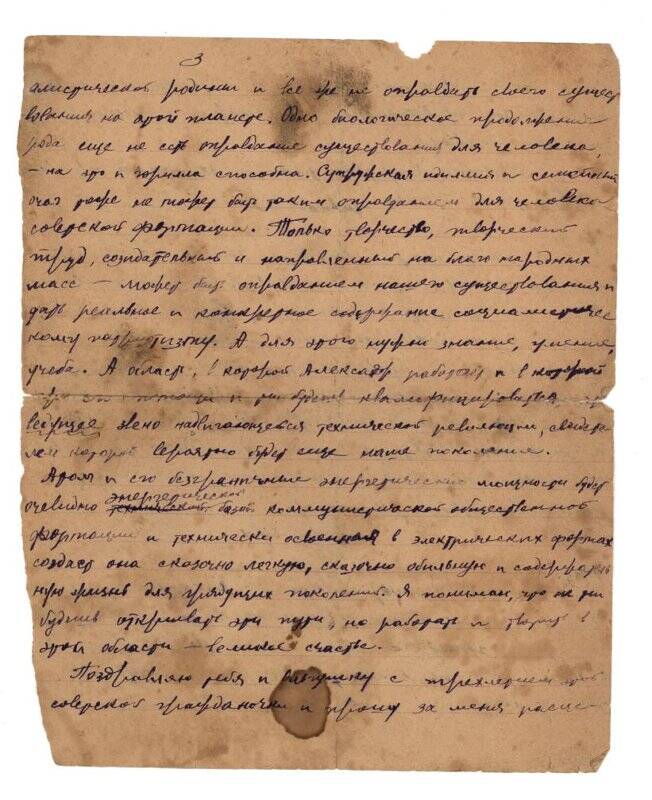 3
алистической родины и все же не оправдать своего сущест
вования на этой планете. Одно биологическое продолжение
рода еще не есть оправдание существования для человека,
— на это и горилла способна. Супружская идиллия и семейный
очаг тоже не может быть таким оправданием для человека
советской формации. Только творчество, творческий
труд, созидательный и направленный на благо народных
масс — может быть оправданием нашего существования и
дать реальное и конкретное содержание социалистичес
кому патриотизму. А для этого нужны знание, умение,
учеба. А область, в которой Александр работает и в которой
помощи и ты будешь квалифицироваться
ведущее звено надвигающейся технической революции, свидете
лем которой вероятно будет еще наше поколение.
Атом и его безграничные энергетические мощности будет
очевидно энергетической технической базой коммунистической общественной
формации и технически освоенная в электрических формах
создаст она сказочно легкую, сказочно обильную и содержатель
ную жизнь для грядущих поколений. Я понимаю, что не ты
будешь открывать эти пути, но работать и творить в
этой области — великое счастье.
Поздравляю тебя и с трехлетием
советской гражданочки и прошу за меня расце-